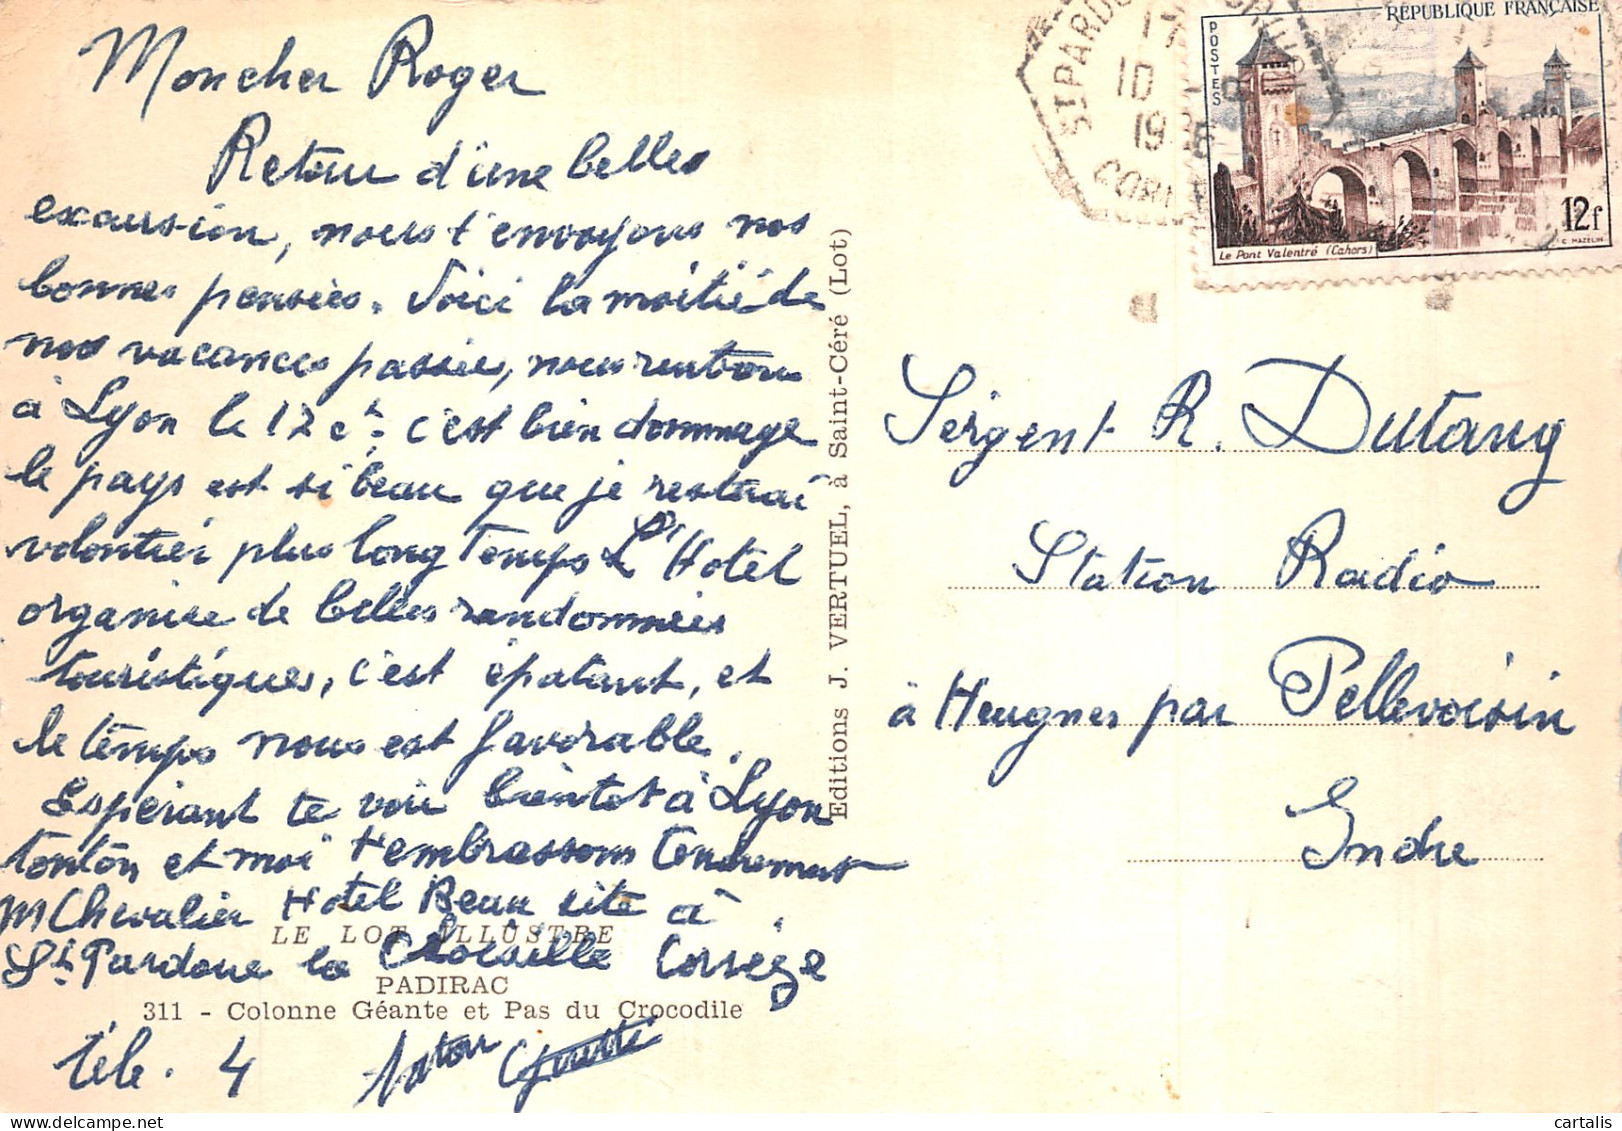 Moncher Roger
Retour d'une belles
excursion, nous t'envoyons nos
bonnes pensées. Voici la moitié de
nos vacances passées, nous rentrons
à Lyon le 12 ct. c'est bien dommage
le pays est si beau que je resterai
volontier plus long temps L'Hotel
organise de belles randonnées
touristiques, c'est épatant, et
le temps nous est favorable.
Espérant te voir bientot à Lyon
tonton et moi t'embrassons tendrement
M Chevalier Hotel Beau site à
St Pardoux la Croisille Corrèze
LE LOT ILLUSTRE
PADIRAC
311 - Colonne Géante et Pas du Crocodile
Télé. 4
Editions J. VERTUEL, à Saint-Céré (Lot)
ST PARDOUX
10
19
CORR
RÉPUBLIQUE FRANÇAISE
POSTES
12f
Le Pont Valentré (Cahors)
C. MAZELIN
Sergent R. Dutang
Station Radio
à Heugnes par Pellevoisin
Indre
cartalis